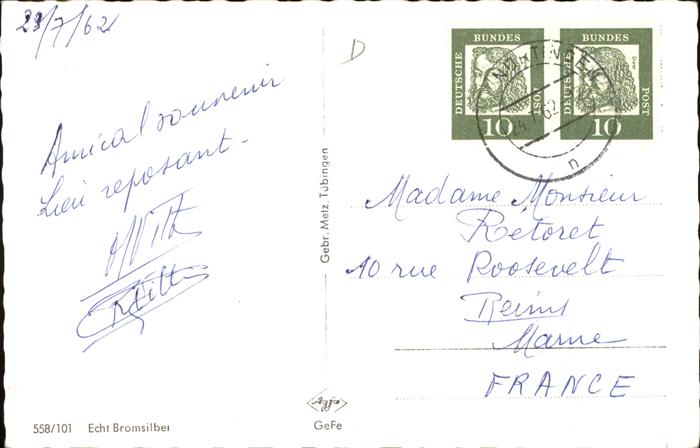 /7/62
Amical souvenir
Lieu reposant -
Gebr. Metz, Tübingen
DEUTSCHE BUNDES POST
10
DEUTSCHE BUNDES POST
10
Dürer
NÜRTINGEN
n
D
Madame Monsieur
Rétoret
10 rue Roosevelt
Reims
Marne
FRANCE
558/101 Echt Bromsilber
Agfa
GeFe